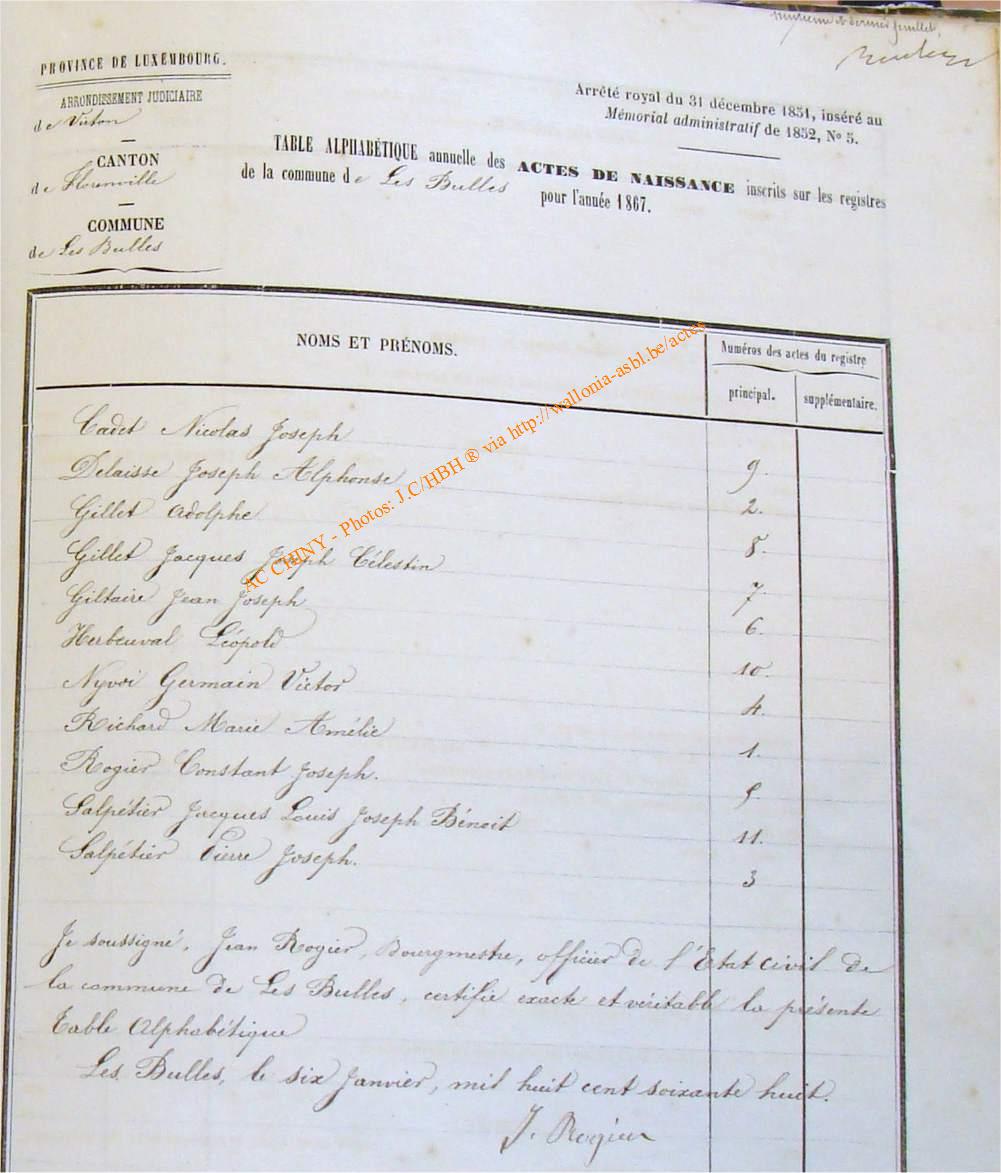 onzième et dernier feuillet,
PROVINCE DE LUXEMBOURG.
ARRONDISSEMENT JUDICIAIRE
de Virton
CANTON
de Florenville
COMMUNE
de Les Bulles
Arrêté royal du 31 décembre 1851, inséré au
Mémorial administratif de 1852, No 5.
TABLE ALPHABÉTIQUE annuelle des ACTES DE NAISSANCE inscrits sur les registres
de la commune de Les Bulles pour l'année 1867.
NOMS ET PRÉNOMS.
Numéros des actes du registre
principal. supplémentaire.
Cadet Nicolas Joseph 9.
Delaisse Joseph Alphonse 2.
Gillet Adolphe 8.
Gillet Jacques Joseph Célestin 7.
Giltaire Jean Joseph 6.
Herbeuval Léopold 10.
Nyvoi Germain Victor 4.
Richard Marie Amélie 1.
Rogier Constant Joseph. 5.
Salpétier Jacques Louis Joseph Bénoit 11.
Salpétier Pierre Joseph. 3
Je soussigné, Jean Rogier, Bourgmestre, officier de l'État civil de
la commune de Les Bulles, certifie exacte et véritable la présente
Table Alphabétique
Les Bulles, le six Janvier, mil huit cent soixante huit.
J. Rogier
AC CHINY - Photos: J.C/HBH ® via http://wallonia-asbl.be/actes